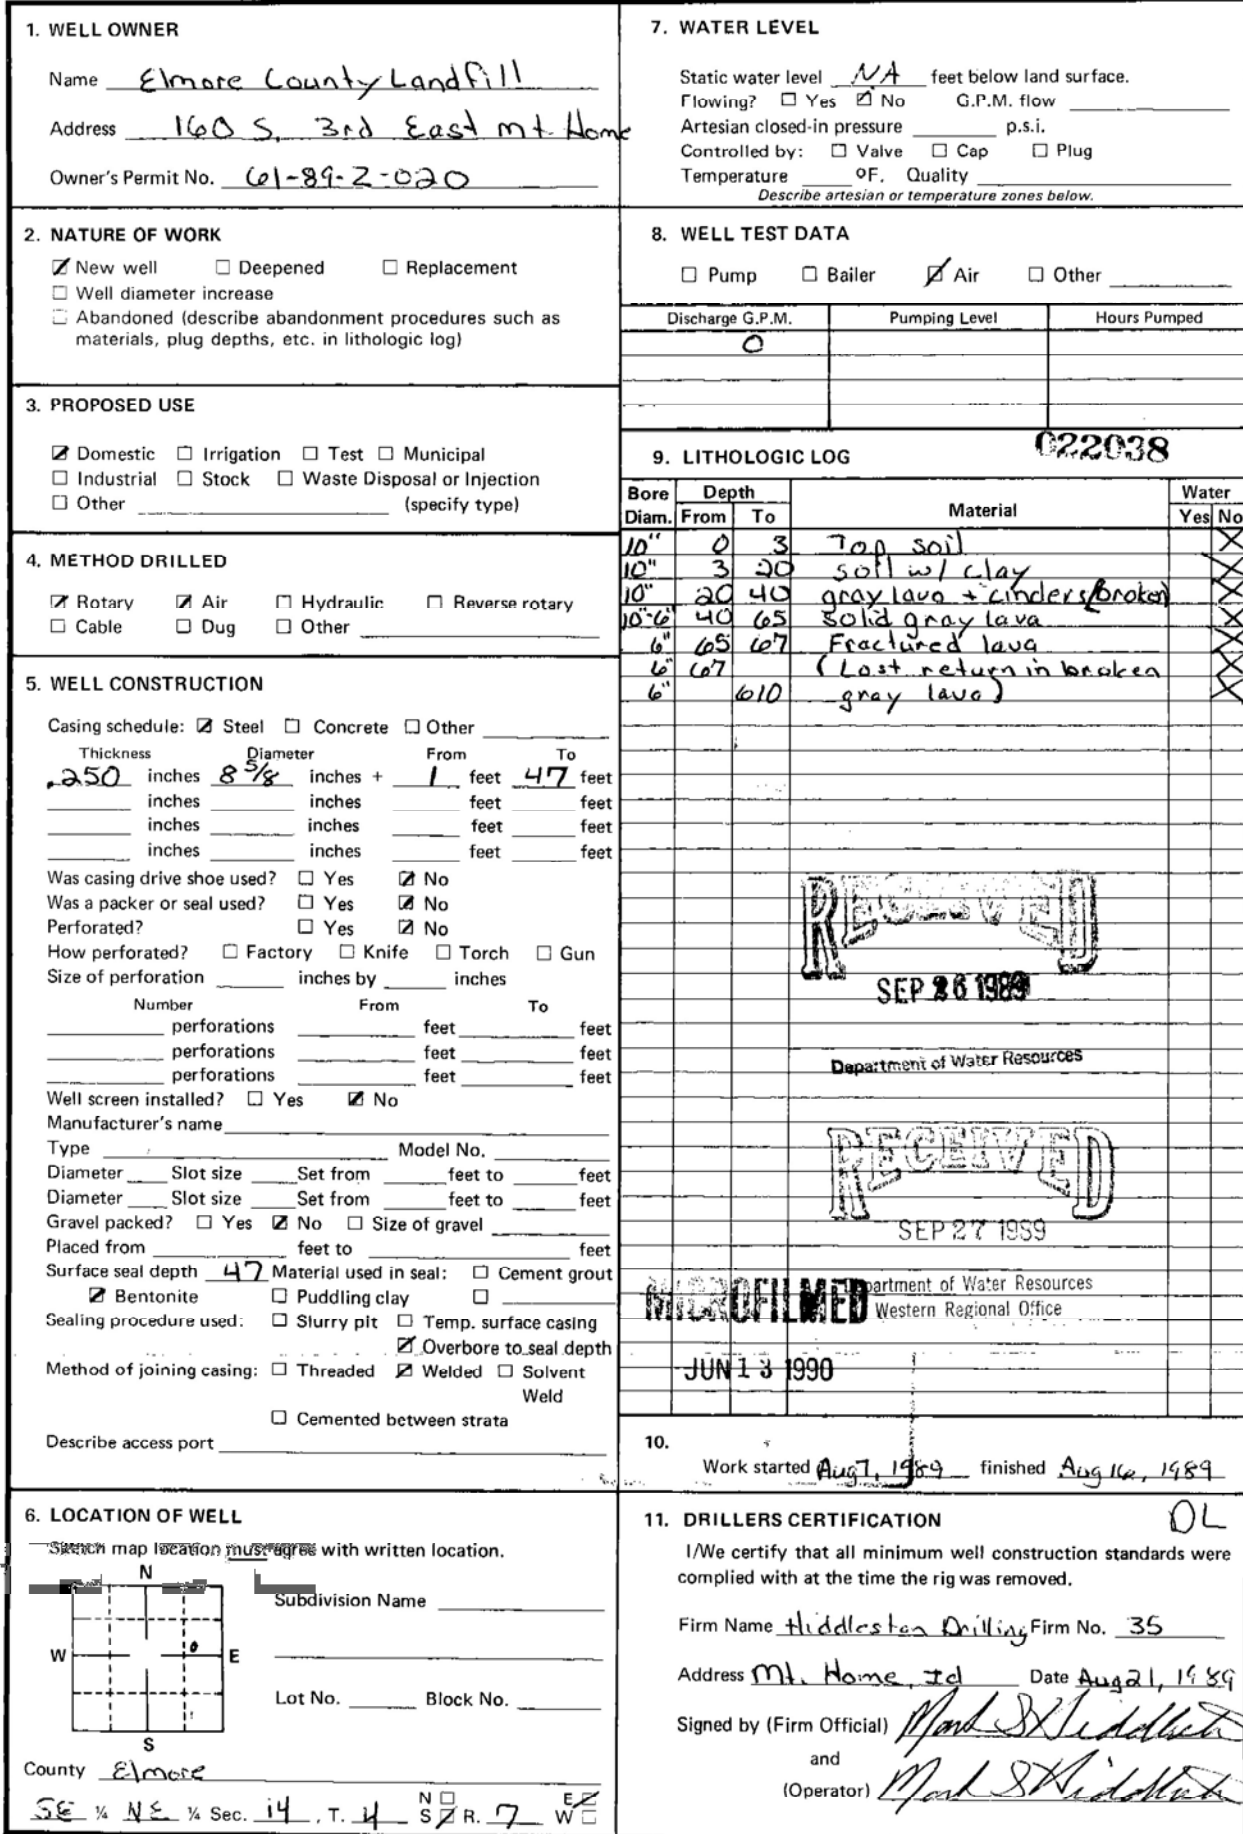 1. WELL OWNER
Name Elmore County Landfill
Address 160 S. 3rd East Mt. Home
Owner's Permit No. 61-89-Z-020
2. NATURE OF WORK
☑ New well ☐ Deepened ☐ Replacement
☐ Well diameter increase
☐ Abandoned (describe abandonment procedures such as
materials, plug depths, etc. in lithologic log)
3. PROPOSED USE
☑ Domestic ☐ Irrigation ☐ Test ☐ Municipal
☐ Industrial ☐ Stock ☐ Waste Disposal or Injection
☐ Other (specify type)
4. METHOD DRILLED
☑ Rotary ☑ Air ☐ Hydraulic ☐ Reverse rotary
☐ Cable ☐ Dug ☐ Other
5. WELL CONSTRUCTION
Casing schedule: ☑ Steel ☐ Concrete ☐ Other
Thickness Diameter From To
.250 inches 8 5/8 inches + 1 feet 47 feet
inches inches feet feet
inches inches feet feet
inches inches feet feet
Was casing drive shoe used? ☐ Yes ☑ No
Was a packer or seal used? ☐ Yes ☑ No
Perforated? ☐ Yes ☑ No
How perforated? ☐ Factory ☐ Knife ☐ Torch ☐ Gun
Size of perforation inches by inches
Number From To
perforations feet feet
perforations feet feet
perforations feet feet
Well screen installed? ☐ Yes ☑ No
Manufacturer's name
Type Model No.
Diameter Slot size Set from feet to feet
Diameter Slot size Set from feet to feet
Gravel packed? ☐ Yes ☑ No ☐ Size of gravel
Placed from feet to feet
Surface seal depth 47 Material used in seal: ☐ Cement grout
☑ Bentonite ☐ Puddling clay ☐
Sealing procedure used: ☐ Slurry pit ☐ Temp. surface casing
☑ Overbore to seal depth
Method of joining casing: ☐ Threaded ☑ Welded ☐ Solvent
Weld
☐ Cemented between strata
Describe access port
6. LOCATION OF WELL
Sketch map location must agree with written location.
N
Subdivision Name
W E
Lot No. Block No.
S
County Elmore
SE ¼ NE ¼ Sec. 14, T. 4 N ☐ S ☑ R. 7 E ☑ W ☐
7. WATER LEVEL
Static water level NA feet below land surface.
Flowing? ☐ Yes ☑ No G.P.M. flow
Artesian closed-in pressure p.s.i.
Controlled by: ☐ Valve ☐ Cap ☐ Plug
Temperature ºF. Quality
Describe artesian or temperature zones below.
8. WELL TEST DATA
☐ Pump ☐ Bailer ☑ Air ☐ Other
Discharge G.P.M. Pumping Level Hours Pumped
0
022038
9. LITHOLOGIC LOG
Bore Depth Water
Diam. From To Material Yes No
10" 0 3 Top soil X
10" 3 20 soil w/ clay X
10" 20 40 gray lava + cinders/broken) X
10-6" 40 65 solid gray lava X
6" 65 67 Fractured lava X
6" 67 (Lost return in broken X
6" 610 gray lava) X
RECEIVED
SEP 26 1989
Department of Water Resources
RECEIVED
SEP 27 1989
Department of Water Resources
Western Regional Office
MICROFILMED
JUN 13 1990
10.
Work started Aug 7, 1989 finished Aug 16, 1989
11. DRILLERS CERTIFICATION DL
I/We certify that all minimum well construction standards were
complied with at the time the rig was removed.
Firm Name Hiddleston Drilling Firm No. 35
Address Mt. Home, Id Date Aug 21, 1989
Signed by (Firm Official) Mark S Hiddleston
and
(Operator) Mark S Hiddleston